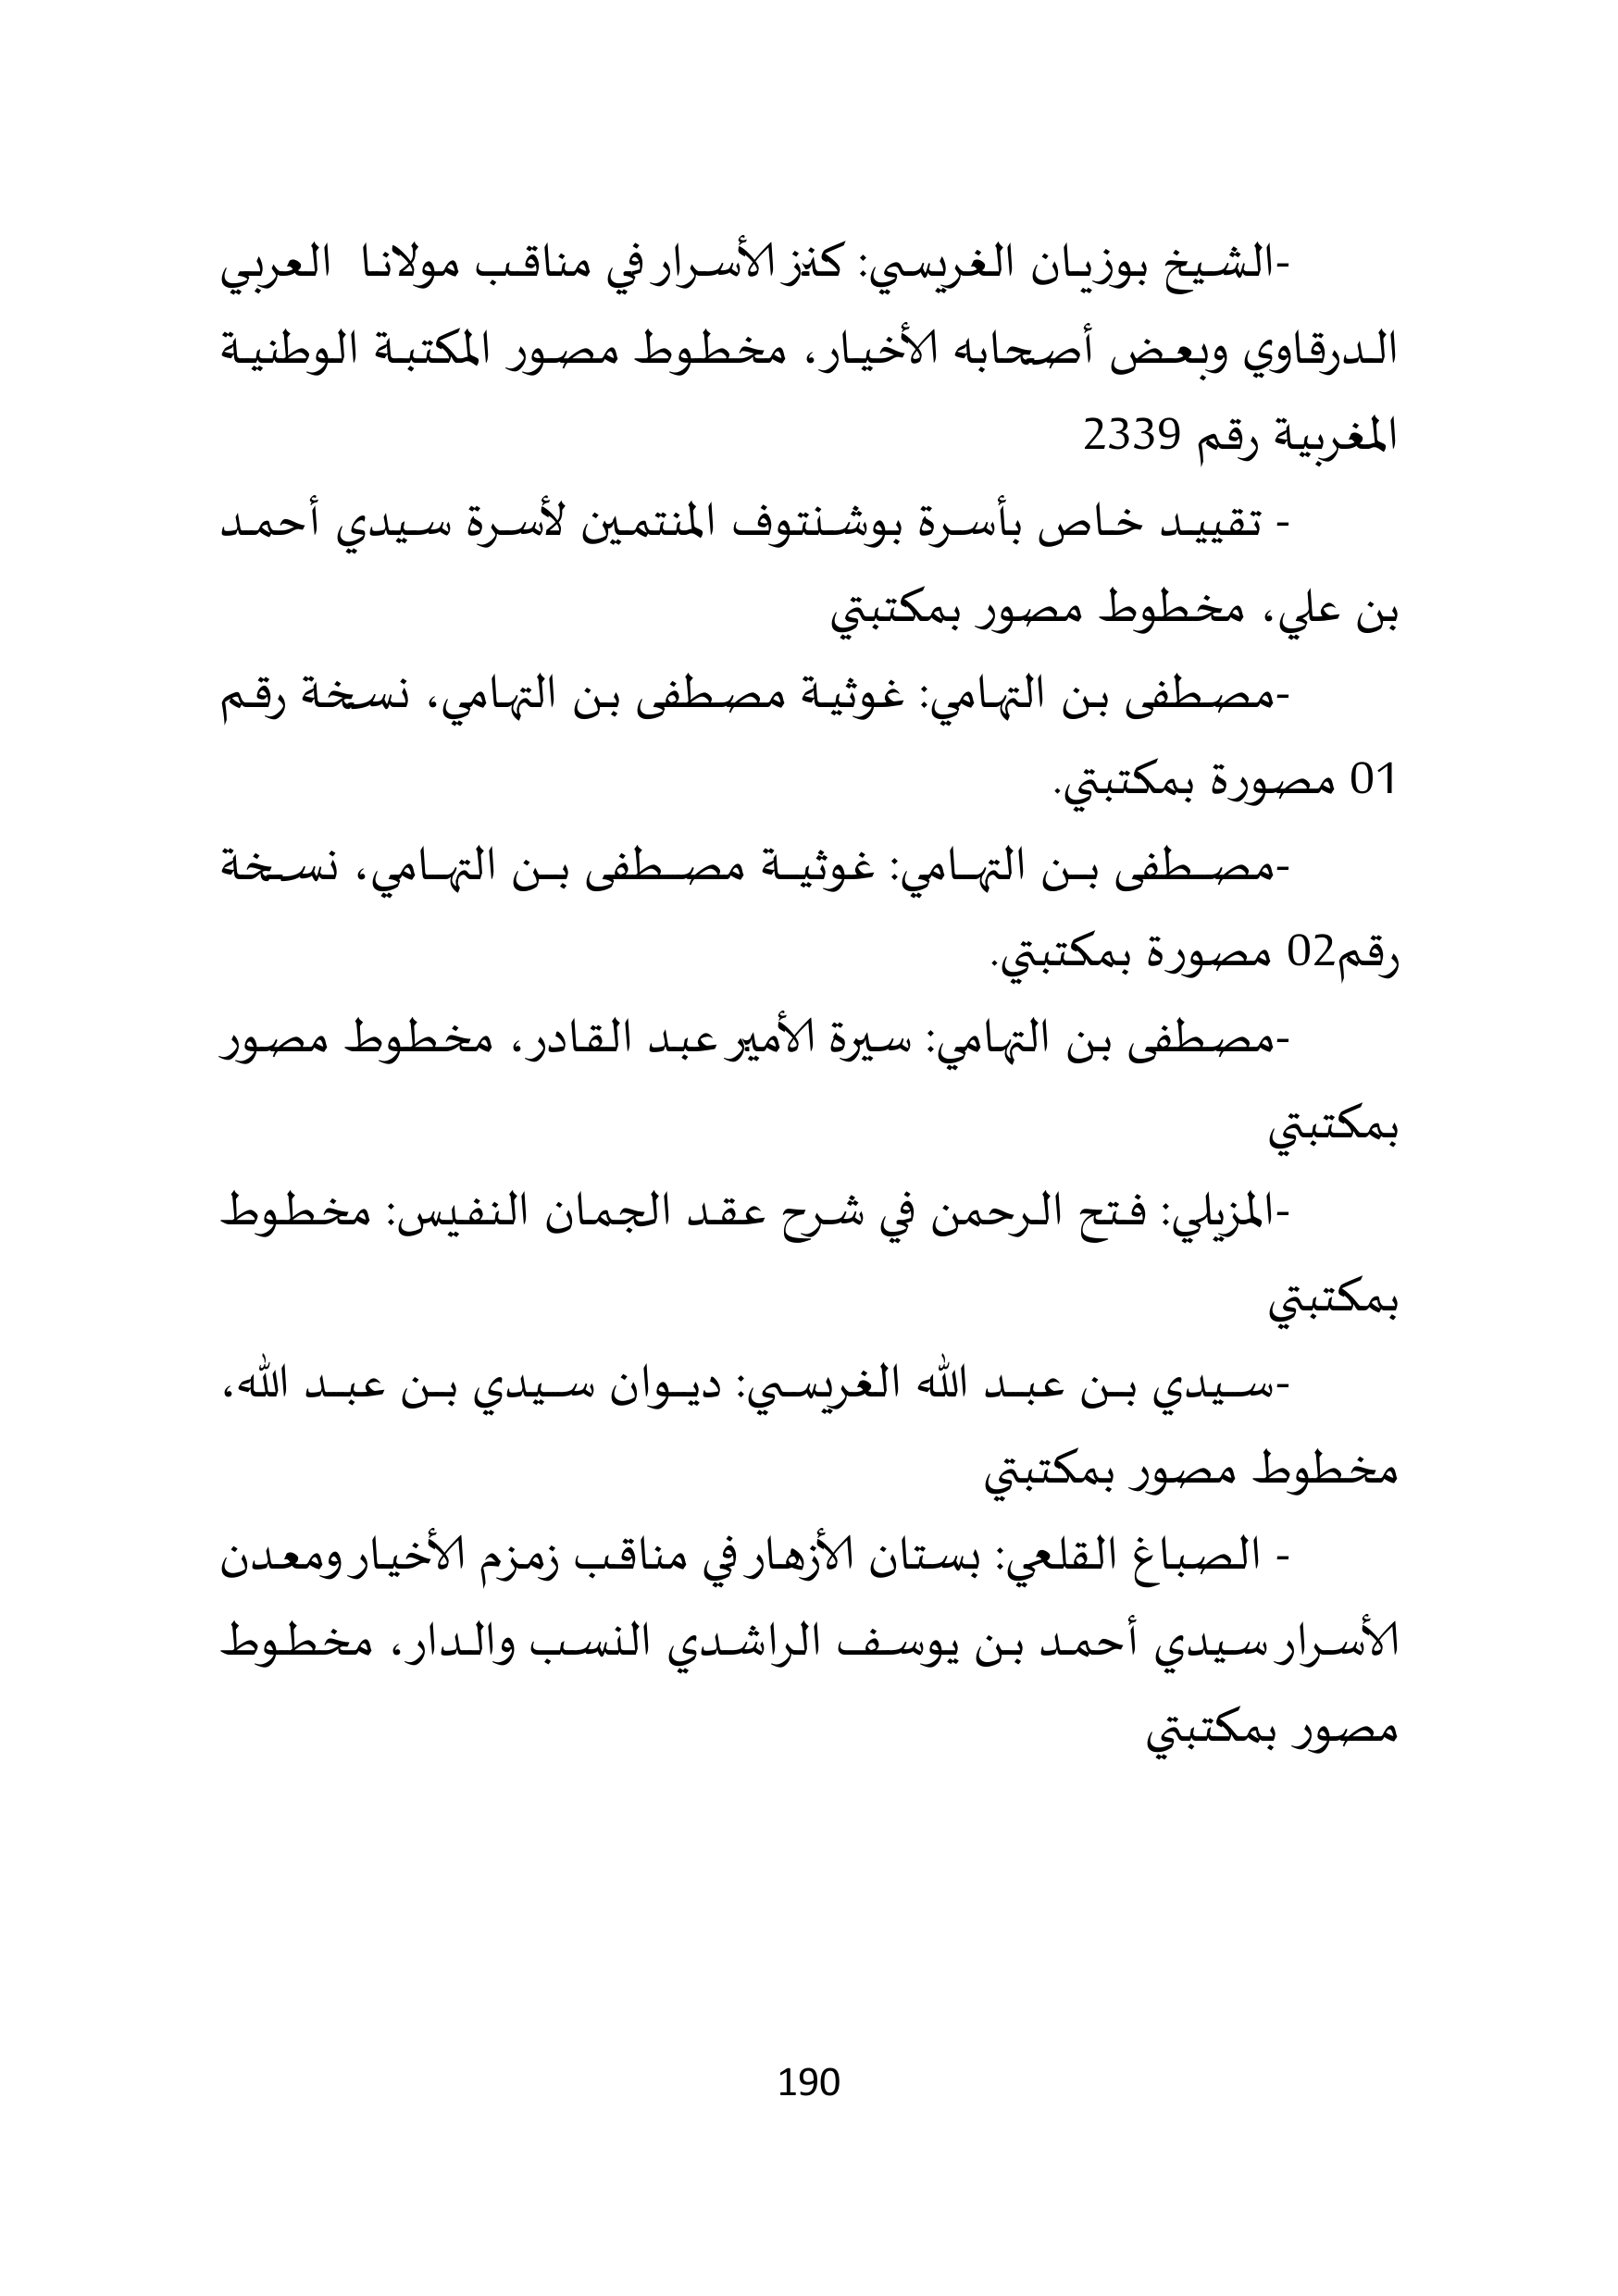 -الشيخ بوزيان الغريسي: كنز الأسرار في مناقب مولانا العربي
الدرقاوي وبعض أصحابه الأخيار، مخطوط مصور المكتبة الوطنية
المغربية رقم 2339
- تقييد خاص بأسرة بوشنتوف المنتمين لأسرة سيدي أحمد
بن علي، مخطوط مصور بمكتبتي
-مصطفى بن التهامي: غوثية مصطفى بن التهامي، نسخة رقم
01 مصورة بمكتبتي.
-مصطفى بن التهامي: غوثية مصطفى بن التهامي، نسخة
رقم02 مصورة بمكتبتي.
-مصطفى بن التهامي: سيرة الأمير عبد القادر، مخطوط مصور
بمكتبتي
-المزيلي: فتح الرحمن في شرح عقد الجمان النفيس: مخطوط
بمكتبتي
-سيدي بن عبد الله الغريسي: ديوان سيدي بن عبد الله،
مخطوط مصور بمكتبتي
- الصباغ القلعي: بستان الأزهار في مناقب زمزم الأخيار ومعدن
الأسرار سيدي أحمد بن يوسف الراشدي النسب والدار، مخطوط
مصور بمكتبتي
190